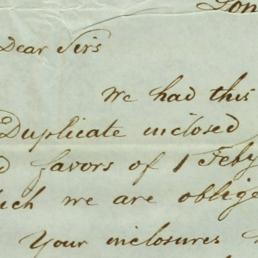 Lon
Dear Sirs
We had this
Duplicate inclosed
d favors of 1 Feby
ich we are oblige
Your inclosures